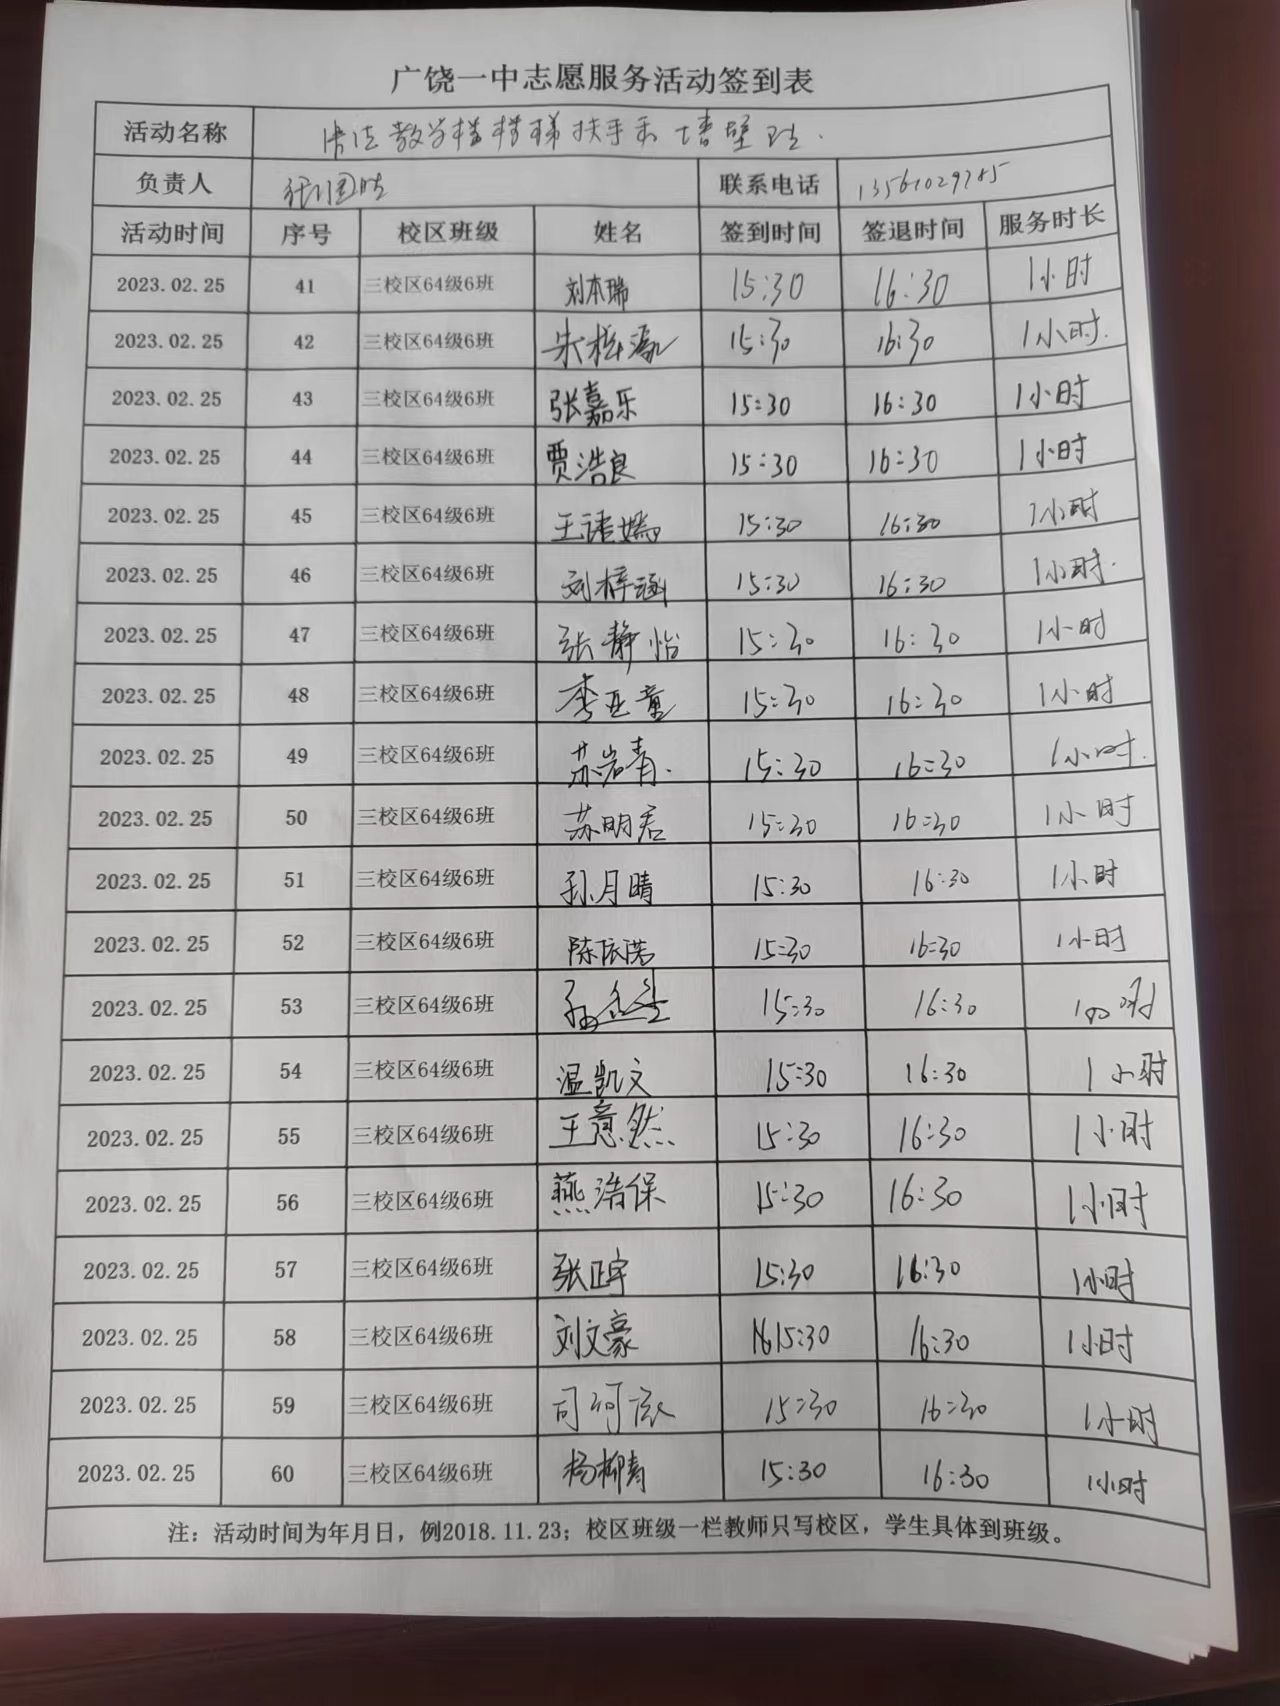 广饶一中志愿服务活动签到表
活动名称 清洁教学楼楼梯扶手和墙壁
负责人 联系电话
活动时间 序号 校区班级 姓名 签到时间 签退时间 服务时长
2023.02.25 41 三校区64级6班 刘本瑞 15:30 16:30 1小时
2023.02.25 42 三校区64级6班 15:30 16:30 1小时.
2023.02.25 43 三校区64级6班 张嘉乐 15:30 16:30 1小时
2023.02.25 44 三校区64级6班 贾浩良 15:30 16:30 1小时
2023.02.25 45 三校区64级6班 王诺嫣 15:30 16:30 1小时
2023.02.25 46 三校区64级6班 刘梓涵 15:30 16:30 1小时.
2023.02.25 47 三校区64级6班 张静怡 15:30 16:30 1小时
2023.02.25 48 三校区64级6班 李亚童 15:30 16:30 1小时
2023.02.25 49 三校区64级6班 苏岩青. 15:30 16:30 1小时.
2023.02.25 50 三校区64级6班 苏明君 15:30 16:30 1小时
2023.02.25 51 三校区64级6班 孙月晴 15:30 16:30 1小时
2023.02.25 52 三校区64级6班 陈辰诺 15:30 16:30 1小时
2023.02.25 53 三校区64级6班 15:30 16:30 1小时
2023.02.25 54 三校区64级6班 温凯文 15:30 16:30 1小时
2023.02.25 55 三校区64级6班 王意然 15:30 16:30 1小时
2023.02.25 56 三校区64级6班 燕浩保 15:30 16:30 1小时
2023.02.25 57 三校区64级6班 张正宇 15:30 16:30 1小时
2023.02.25 58 三校区64级6班 刘文豪 15:30 16:30 1小时
2023.02.25 59 三校区64级6班 15:30 16:30 1小时
2023.02.25 60 三校区64级6班 杨柳青 15:30 16:30 1小时
注：活动时间为年月日，例2018.11.23；校区班级一栏教师只写校区，学生具体到班级。